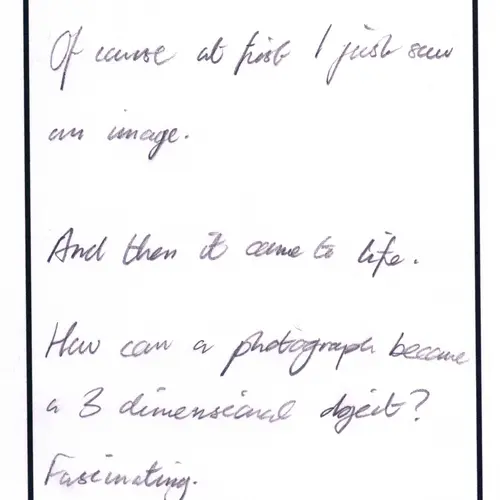 Of course at first I just saw
an image.
And then it came to life.
How can a photograph become
a 3 dimensional object?
Fascinating.